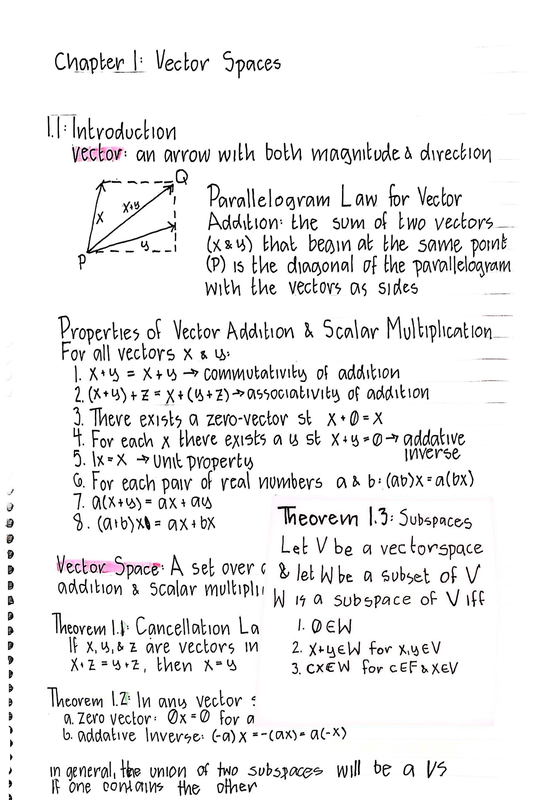 Chapter 1: Vector Spaces
1.1: Introduction
vector: an arrow with both magnitude & direction
Q
x
x+y
y
P
Parallelogram Law for Vector
Addition: the sum of two vectors
(x & y) that begin at the same point
(P) is the diagonal of the parallelogram
with the vectors as sides
Properties of Vector Addition & Scalar Multiplication
For all vectors x & y:
1. x+y = x+y → commutativity of addition
2. (x+y)+z = x+(y+z) → associativity of addition
3. There exists a zero-vector st x+0=x
4. For each x there exists a y st x+y=0 → addative
inverse
5. 1x=x → unit property
6. For each pair of real numbers a & b: (ab)x = a(bx)
7. a(x+y) = ax+ay
8. (a+b)x = ax+bx
Vector Space: A set over
addition & scalar multipli
Theorem 1.1: Cancellation La
If x, y, & z are vectors in
x+z = y+z, then x=y
Theorem 1.2: In any vector s
a. zero vector: 0x=0 for a
b. addative inverse: (-a)x = -(ax) = a(-x)
Theorem 1.3: Subspaces
Let V be a vectorspace
& let W be a subset of V
W is a subspace of V iff
1. 0∈W
2. x+y∈W for x,y∈V
3. cx∈W for c∈F & x∈V
in general, the union of two subspaces will be a VS
If one contains the other